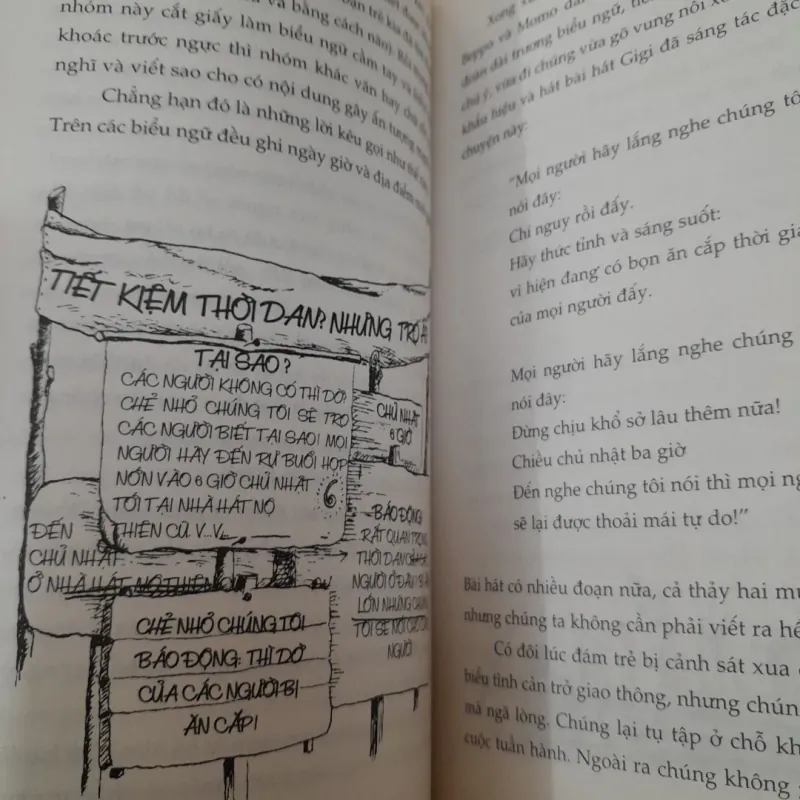 nhóm này cắt giấy làm biểu ngữ cầm tay và
khoác trước ngực thì nhóm khác văn hay chữ
nghĩ và viết sao cho có nội dung gây ấn tượng
Chẳng hạn đó là những lời kêu gọi như thế
Trên các biểu ngữ đều ghi ngày giờ và địa điểm
TIẾT KIỆM THỜI DAN? NHƯNG TRO
TẠI SAO?
CÁC NGƯỜI KHÔNG CÓ THÌ DỜ?
CHẺ NHỎ CHÚNG TÔI SẼ TRO
CÁC NGƯỜI BIẾT TẠI SAO! MỌI
NGƯỜI HÃY ĐẾN RỰ BUỔI HỌP
NỚN VÀO 6 GIỜ CHỦ NHẬT
TỚI TẠI NHÀ HÁT NỘ
THIÊN CŨ. V...V...
6
CHỦ NHẬT
6 GIỜ
ĐẾN
CHỦ NHẬT
Ở NHÀ HÁT NỘ THIÊN
BÁO ĐỘNG:
RẤT QUAN TRỌNG
THỜI DAN
NGƯỜI Ở ĐÂU
LỚN NHƯNG CHÚNG
TÔI SẼ NÓI CHO
NGƯỜI
CHẺ NHỎ CHÚNG TÔI
BÁO ĐỘNG: THÌ DỜ
CỦA CÁC NGƯỜI BỊ
ĂN CẮP!
Beppo và Momo
đoàn dài trương biểu ngữ,
chú ý, vừa đi chúng vừa gõ vung nồi
khẩu hiệu và hát bài hát Gigi đã sáng tác đặc
chuyện này:
“Mọi người hãy lắng nghe chúng tô
nói đây:
Chí nguy rồi đấy.
Hãy thức tỉnh và sáng suốt:
vì hiện đang có bọn ăn cắp thời gia
của mọi người đấy.
Mọi người hãy lắng nghe chúng
nói đây:
Đừng chịu khổ sở lâu thêm nữa!
Chiều chủ nhật ba giờ
Đến nghe chúng tôi nói thì mọi ng
sẽ lại được thoải mái tự do!”
Bài hát có nhiều đoạn nữa, cả thảy hai mư
nhưng chúng ta không cần phải viết ra hế
Có đôi lúc đám trẻ bị cảnh sát xua
biểu tình cản trở giao thông, nhưng chún
mà ngã lòng. Chúng lại tụ tập ở chỗ kh
cuộc tuần hành. Ngoài ra chúng không